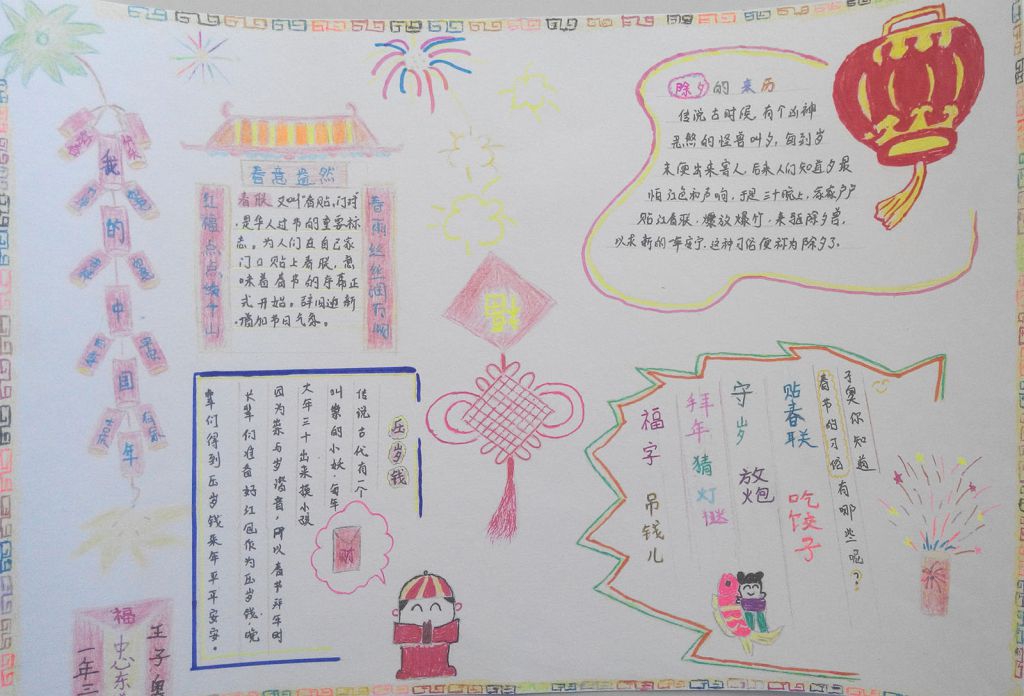 我的中国年
春意盎然
红福点点
春雨丝丝润万
春联又叫"春贴,门对"
是华人过节的重要标
志。为人们在自己家
门口贴上春联,意
味着春节的序幕正
式开始。辞旧迎新
增加节日气氛。
除夕的来历
传说古时侯,有个凶神
恶煞的怪兽叫夕,每到岁
末便出来害人,后来人们知道夕最
怕红色和声响,于是三十晚上,家家户户
贴红春联、爆放爆竹,来驱除夕兽,
以求新的一年安宁.这种习俗便称为除夕了。
福
压岁钱
传说古代有一个
叫祟的小妖,每年
大年三十出来摸小孩
因为祟与岁谐音,所以春节拜年时
长辈们准备好红包作为压岁钱,晚
辈们得到压岁钱来年平平安安。
子奥你知道
春节的习俗有哪些呢?
贴春联 吃饺子
守岁 放炮
拜年 猜灯谜
福字 吊钱儿
福
王子奥
忠心东
一年三